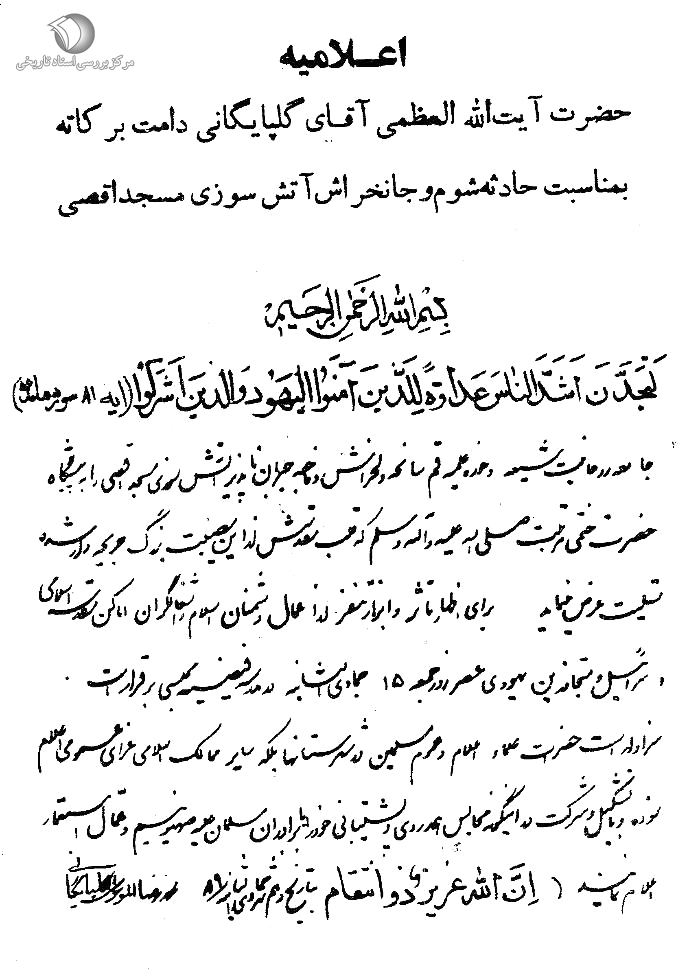 مرکز بررسی اسناد تاریخی
اعلامیه
حضرت آیت‌الله العظمی آقای گلپایگانی دامت برکاته
بمناسبت حادثه شوم و جانخراش آتش سوزی مسجد اقصی
بسم الله الرحمن الرحیم
لتجدن اشد الناس عداوة للذین آمنوا الیهود والذین اشرکوا (آیه ۸۱ سوره مائده)
جامعه روحانیت شیعه و حوزه علمیه قم سانحه دلخراش و ضایعه جبران ناپذیر آتش سوزی مسجد اقصی را به پیشگاه
حضرت ختمی مرتبت صلی الله علیه و آله و سلم که قلب مقدسش از این مصیبت بزرگ جریحه دار شده
تسلیت عرض مینماید برای اظهار تأثر و ابراز تنفر از اعمال دشمنان اسلام و اشغالگران اماکن مقدسه اسلامی
و اسرائیل و متجاوزین یهودی عصر روز جمعه ۱۵ جمادی الثانیه در مدرسه فیضیه مجلسی برقرار است .
سزاوار است حضرات علماء اعلام و عموم مسلمین در شهرستانها بلکه سایر ممالک اسلامی عزای عمومی اعلام
نموده و با تشکیل و شرکت در اینگونه مجالس همدردی و پشتیبانی خود را از برادران مسلمان علیه صهیونیسم و عمال استعمار
اعلام نمایند ( ان الله عزیز ذو انتقام بتاریخ دهم جمادی الثانیه ۸۹ محمدرضا الموسوی الگلپایگانی